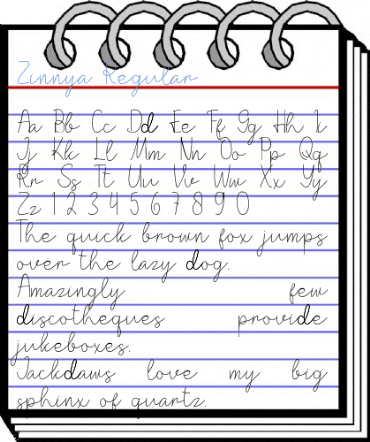 Zinnya Regular
Aa Bb Cc Dd Ee Ff Gg Hh I
Jj Kk Ll Mm Nn Oo Pp Qq
Rr Ss Tt Uu Vv Ww Xx Yy
Zz 1 2 3 4 5 6 7 8 9 0
The quick brown fox jumps
over the lazy dog.
Amazingly few
discotheques provide
jukeboxes.
Jackdaws love my big
sphinx of quartz.